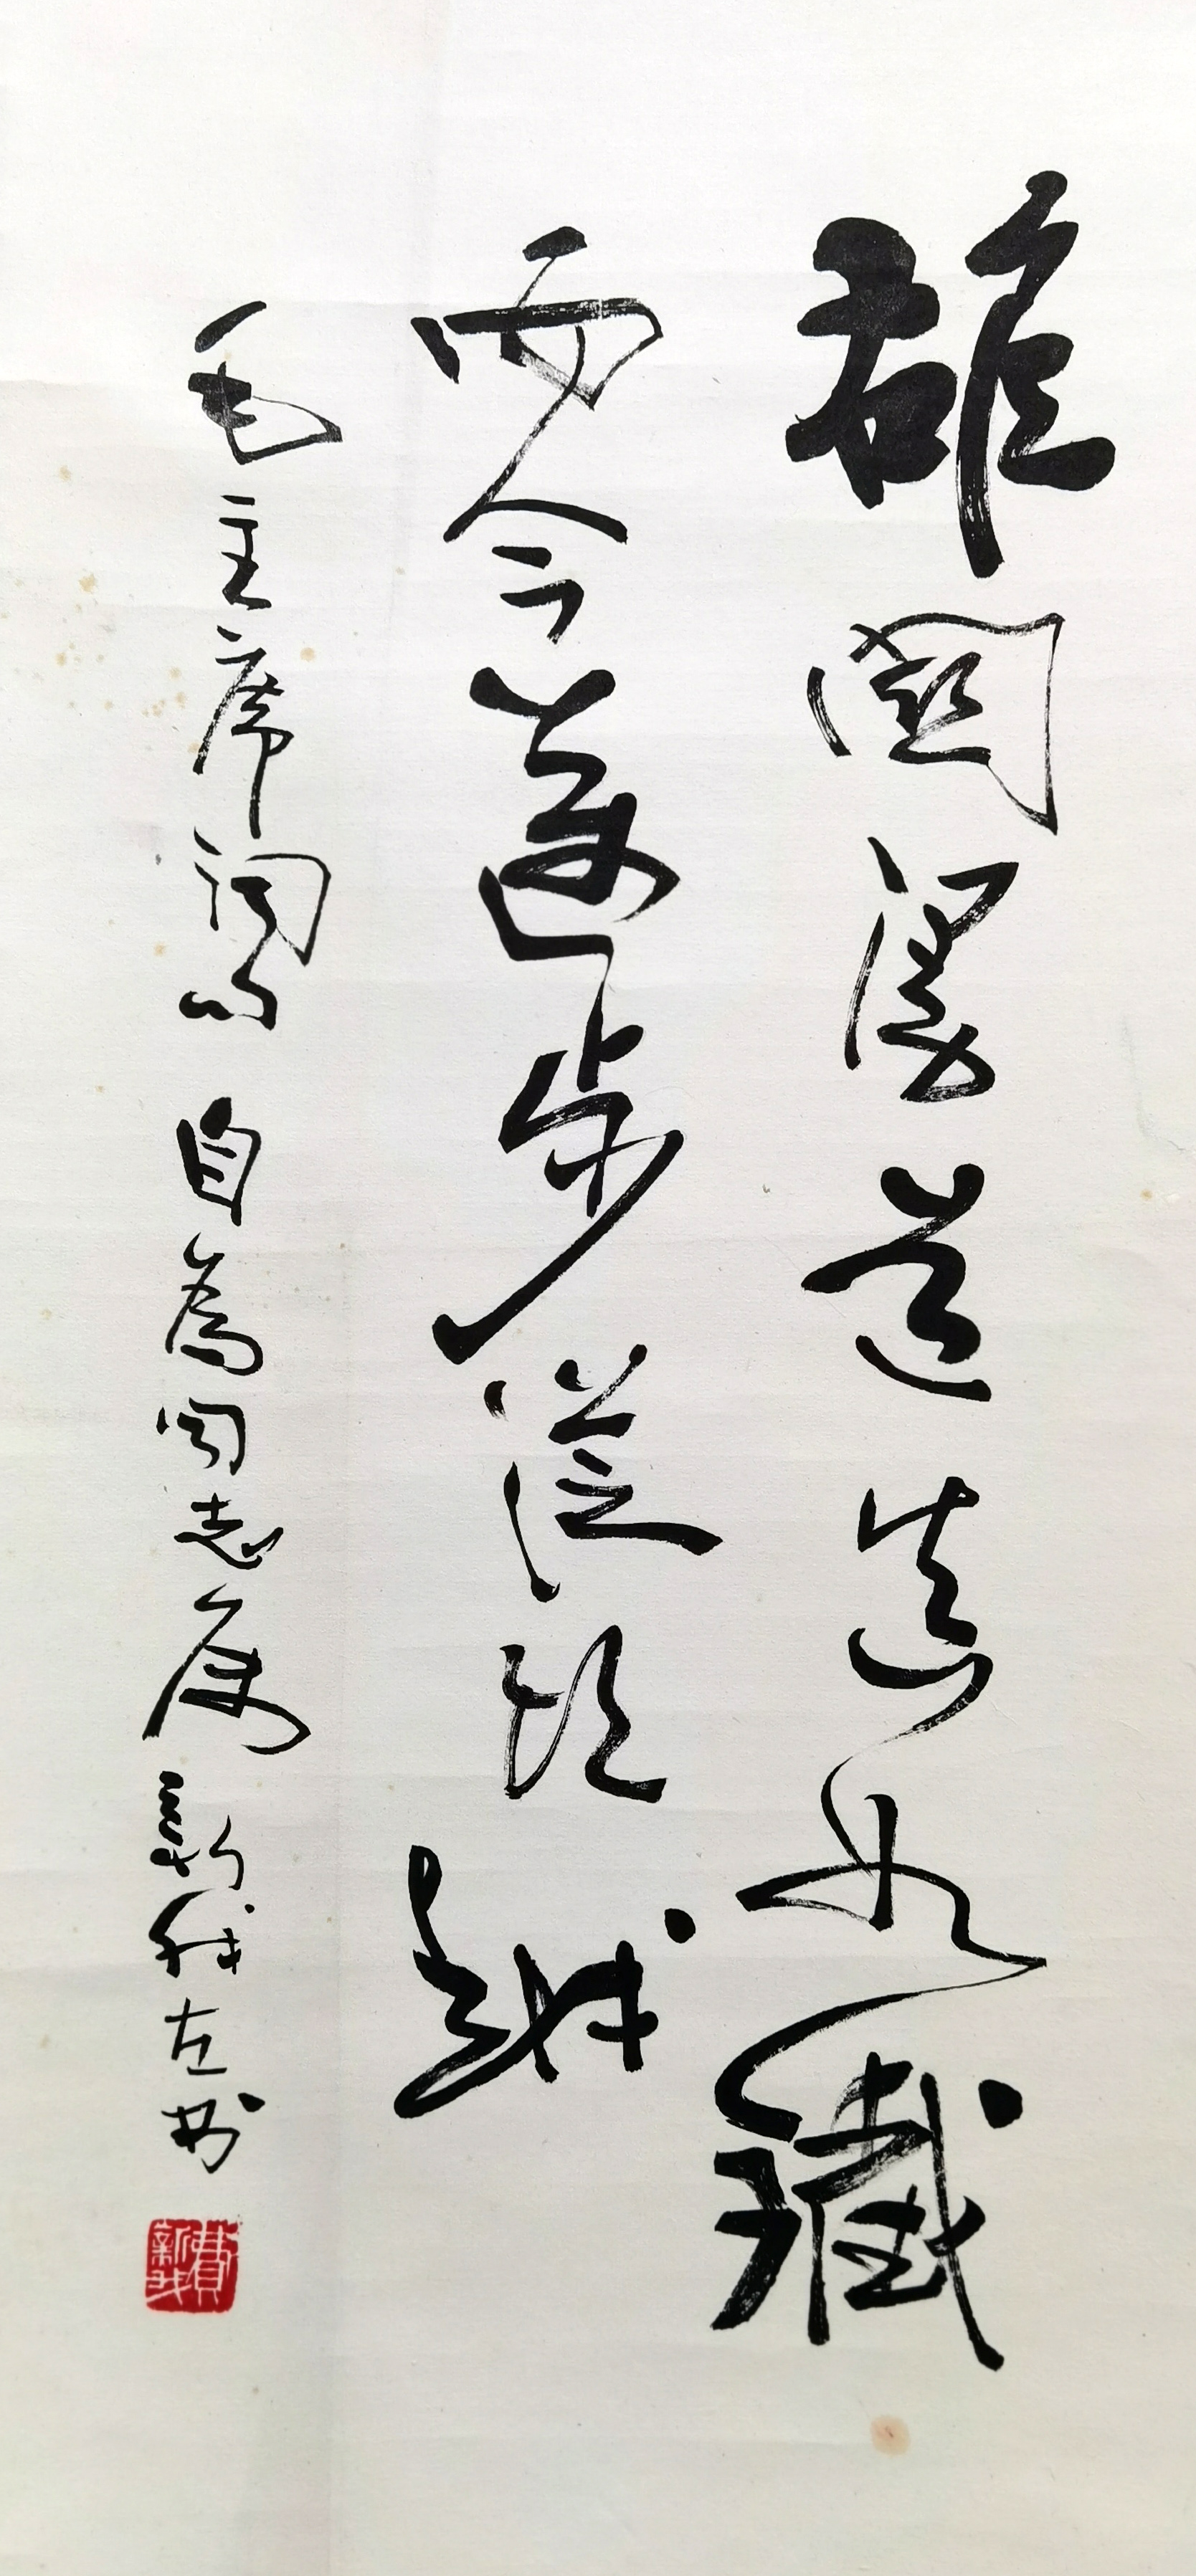 雄關漫道真如鐵
而今邁步從頭越
毛主席詞句 自為同志屬 新我左書
費新我